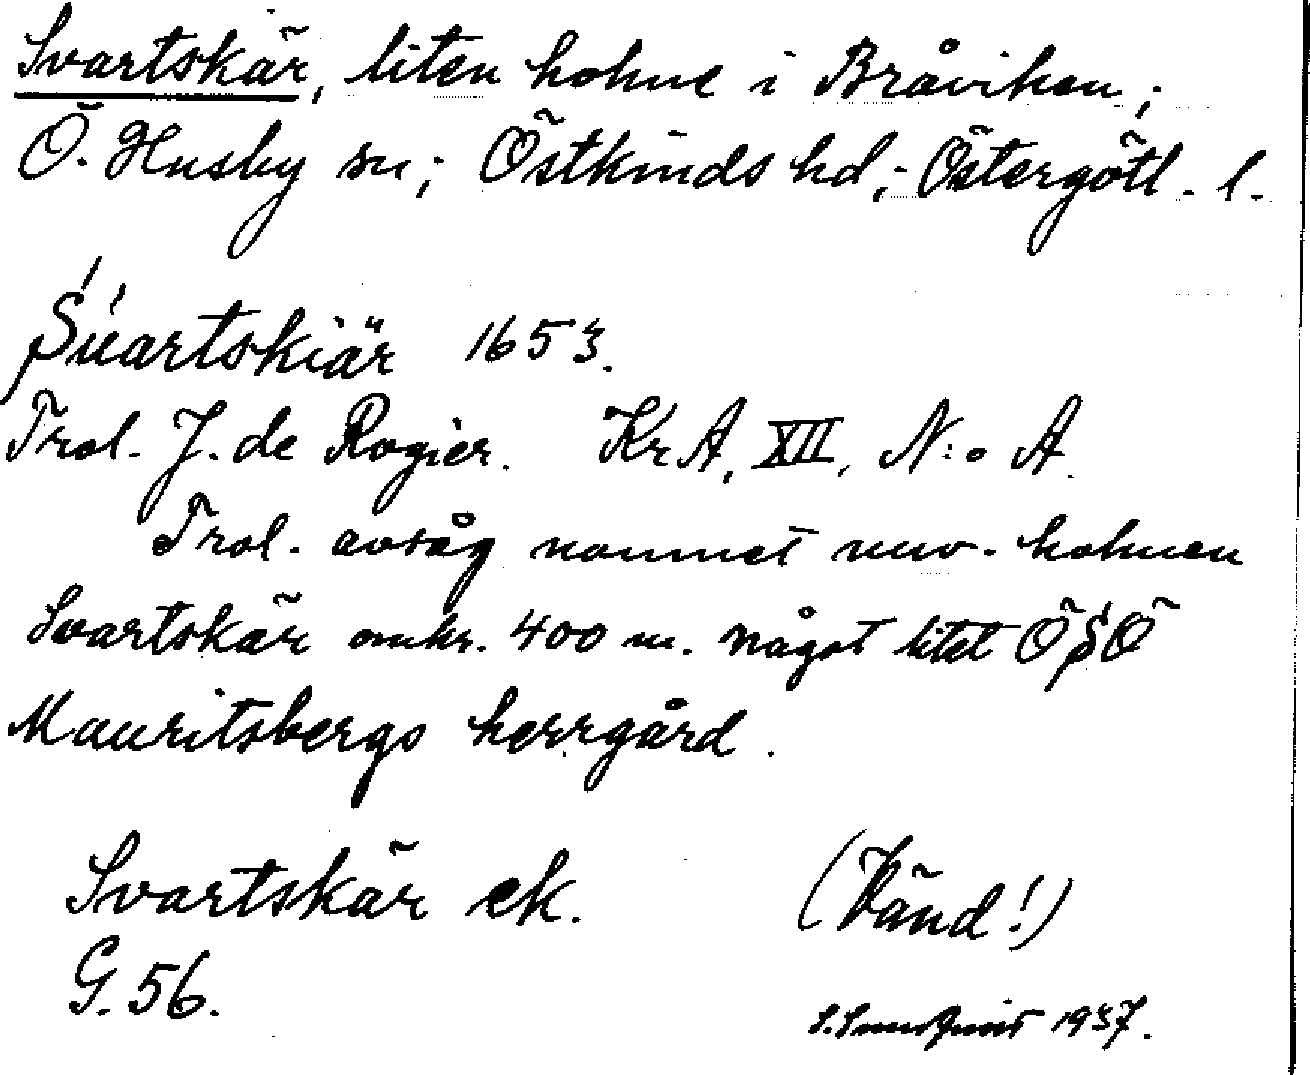 Svartskär, liten holme i Bråviken;
Ö. Husby sn; Östkinds hd; Östergötl. l.
Suartskiär 1653.
Trol. J. de Rogier. KrA, XII, N:o A.
Trol. avsåg namnet nuv. holmen
Svartskär omkr. 400 m. något litet ÖSÖ
Mauritsbergs herrgård.
Svartskär ek. (Vänd!)
G. 56.
1937.